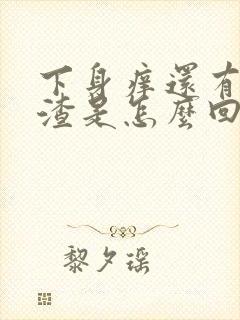 下身痒還有
渣是怎麼回
黎夕瑶